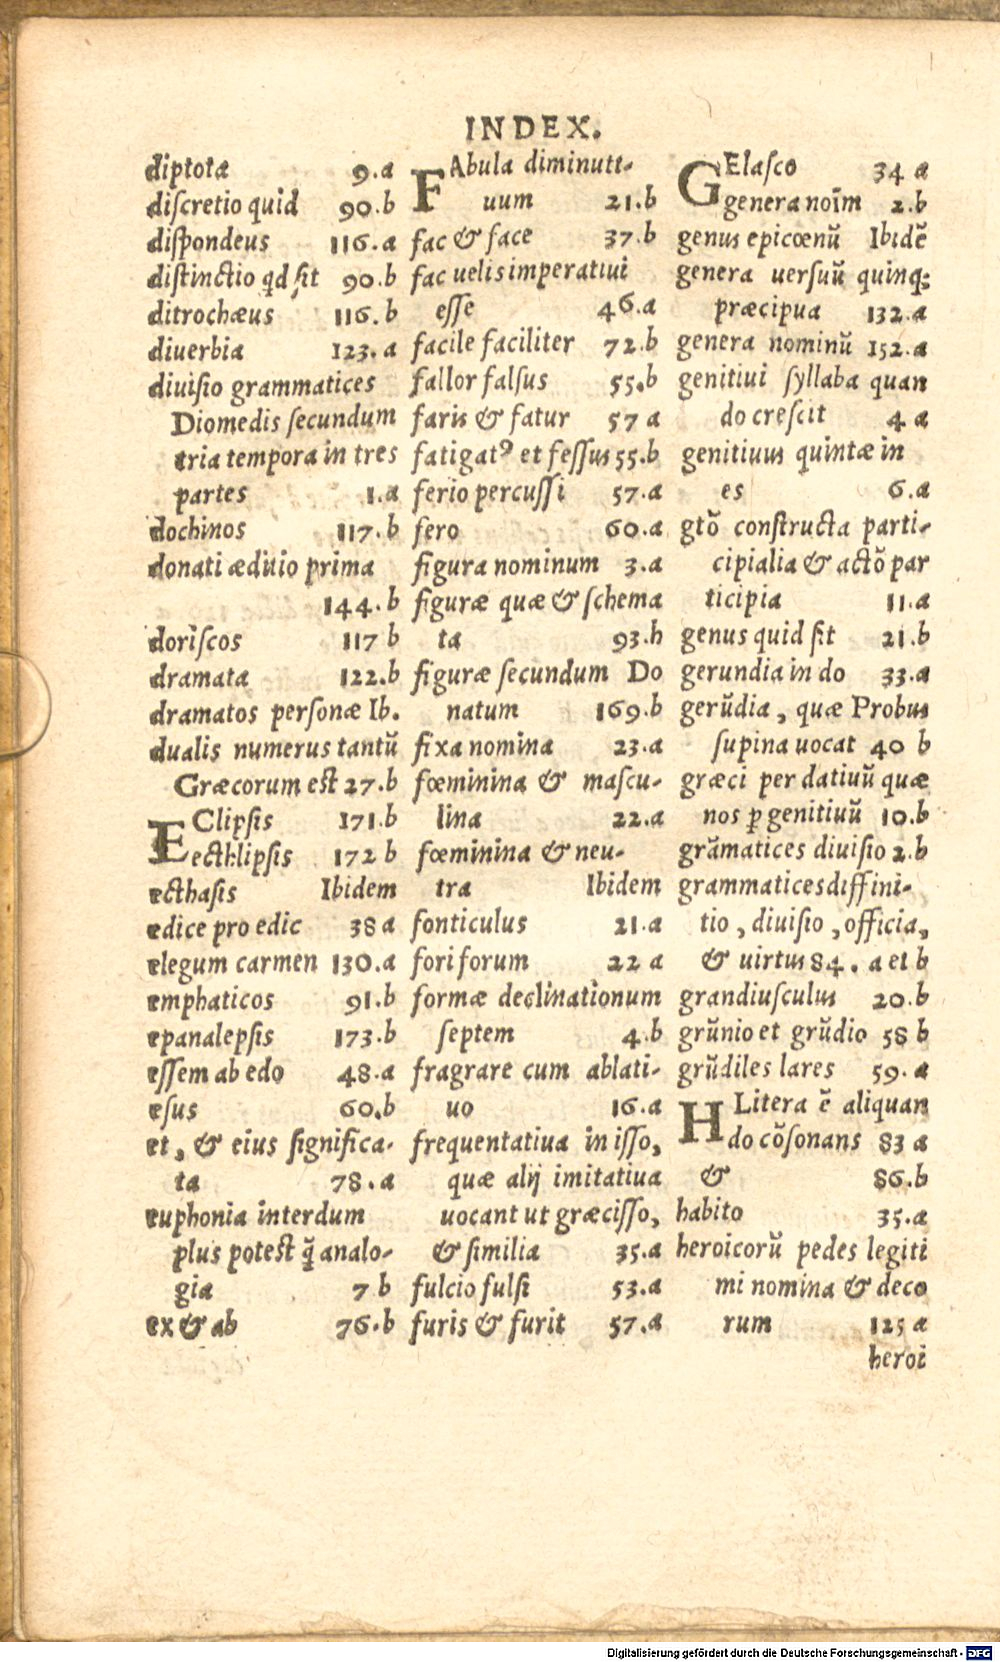 INDEX.
diptota 9.a
diſcretio quid 90.b
diſpondeus 116.a
diſtinctio qd ſit 90.b
ditrochæus 116.b
diuerbia 123.a
diuiſio grammatices
Diomedis ſecundum
tria tempora in tres
partes 1.a
dochinos 117.b
donati æditio prima
144.b
doriſcos 117 b
dramata 122.b
dramatos perſonæ Ib.
dualis numerus tantū
Græcorum eſt 27.b
EClipſis 171.b
ecthlipſis 172 b
ecthaſis Ibidem
edice pro edic 38 a
elegum carmen 130.a
emphaticos 91.b
epanalepſis 173.b
eſſem ab edo 48.a
eſus 60.b
et, & eius ſignifica-
ta 78.a
euphonia interdum
plus poteſt q̄ analo-
gia 7 b
ex & ab 76.b
FAbula diminuti-
uum 21.b
fac & face 37.b
fac uelis imperatiui
eſſe 46.a
facile faciliter 72.b
fallor falſus 55.b
faris & fatur 57 a
fatigatꝰ et feſſus 55.b
ferio percuſſi 57.a
fero 60.a
figura nominum 3.a
figuræ quæ & ſchema
ta 93.h
figuræ ſecundum Do
natum 169.b
fixa nomina 23.a
fœminina & maſcu-
lina 22.a
fœminina & neu-
tra Ibidem
fonticulus 21.a
fori forum 22 a
formæ declinationum
ſeptem 4.b
fragrare cum ablati-
uo 16.a
frequentatiua in iſſo,
quæ alij imitatiua
uocant ut græciſſo,
& ſimilia 35.a
fulcio fulſi 53.a
furis & furit 57.a
GElaſco 34 a
genera noīm 2.b
genus epicœnū Ibidē
genera uerſuū quinq;
præcipua 132.a
genera nominū 152.a
genitiui ſyllaba quan
do creſcit 4 a
genitiuus quintæ in
es 6.a
gtō conſtructa parti-
cipialia & actō par
ticipia 11.a
genus quid ſit 21.b
gerundia in do 33.a
gerūdia, quæ Probus
ſupina uocat 40 b
græci per datiuū quæ
nos ꝑ genitiuū 10.b
grāmatices diuiſio 2.b
grammatices diffini-
tio, diuiſio, officia,
& uirtus 84. a et b
grandiuſculus 20.b
grūnio et grūdio 58 b
grūdiles lares 59. a
H Litera ē aliquan
do cōſonans 83 a
& 86.b
habito 35.a
heroicorū pedes legiti
mi nomina & deco
rum 125 a
heroi
Digitalisierung gefördert durch die Deutsche Forschungsgemeinschaft - DFG